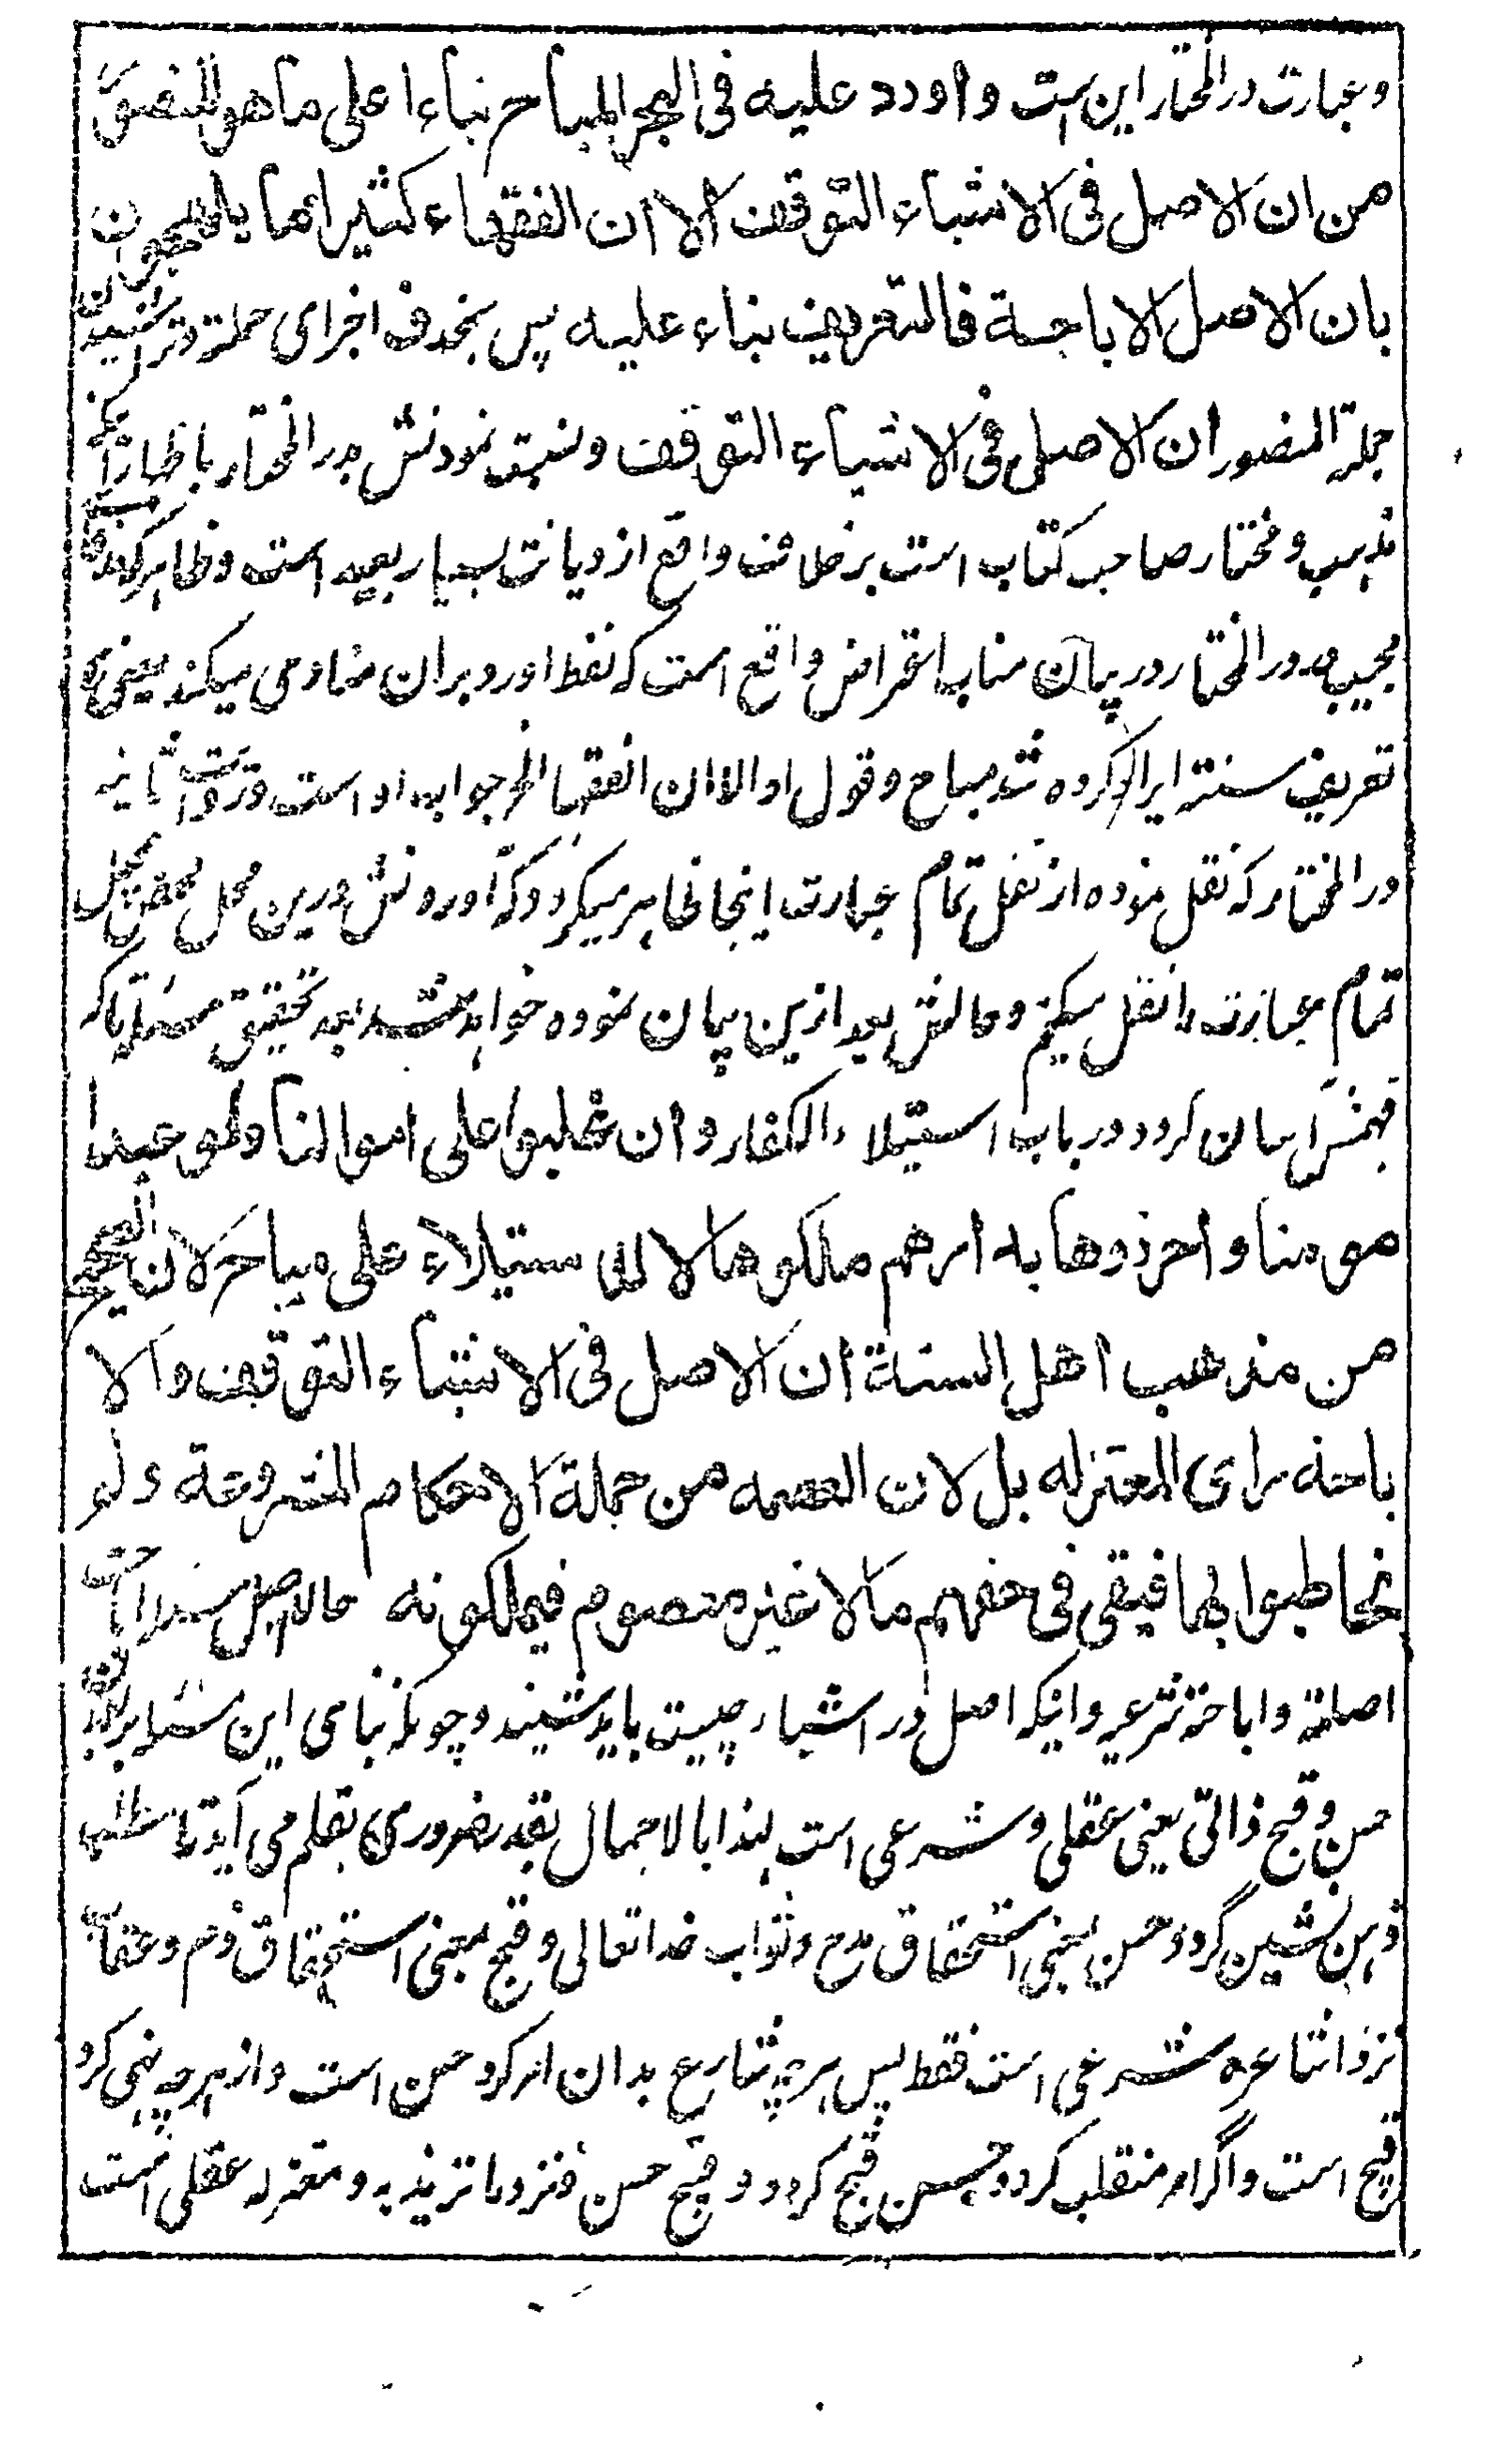 وعبارت درالمختار این است واورد علیه فی البحر المباح بناءا علی ما هو المنصور
من ان الاصل فی الاشیاء التوقف الا ان الفقهاء کثیرا ما یلهجون
بان الاصل الاباحة فالتعریف بناء علیه پس بحذف اجرای جملة وتراشیدن
جملة المنصور ان الاصل فی الاشیاء التوقف ونسبت نمودنش بدرالمختار باظهار آنکه
مذهب ومختار صاحب کتاب است برخلاف واقع از دیانت بسیار بعید است وظاهر
مجیب در درالمختار در بیان مناب اعتراض واقع است که لفظ اورد بران منادی میکند یعنی بر
تعریف سنت ایراد کرده شد مباح وقول او الا ان الفقها الخ جواب او است وروایت ثانیه
درالمختار که نقل نموده از نقل تمام عبارت اینجا ظاهر میگردد که آوردنش درین محل محض بیمحل
تمام عبارت را نقل میکنیم وحالش بعد ازین بیان نموده خواهد شد بعد تحقیق مسئله تا که
فهمش آسان گردد در باب استیلاء الکفار وان غلبوا علی اموالنا ولو عبدا
مومنا واحرزوها بدارهم ملکوها لا للاستیلاء علی مباح لان الصحیح
من مذهب اهل السنة ان الاصل فی الاشیاء التوقف والا
باحة رای المعتزله بل لان العصمه من جملة الاحکام المشروعة ولم
یخاطبوا بها فبقی فی حقهم مالا غیر معصوم فیملکونه حالا اصل مسئله اباحت
اصلیة واباحة شرعیه واینکه اصل در اشیاء چیست باید شنید وچونکه بنای این مسئله بر
حسن وقبح ذاتی یعنی عقلی وشرعی است لهذا بالاجمال بقدر ضروری بقلم می آید تا مطلب
ذهن نشین گردد حسن بمعنی استحقاق مدح وثواب خدا تعالی وقبح بمعنی استحقاق ذم وعقاب
نزد اشاعره شرعی است فقط پس هرچه شارع بدان امر کرد حسن است واز هرچه نهی کرد
قبیح است واگر امر منقلب گردد حسن قبیح گردد وقبیح حسن ونزد ماتریدیه ومعتزله عقلی است